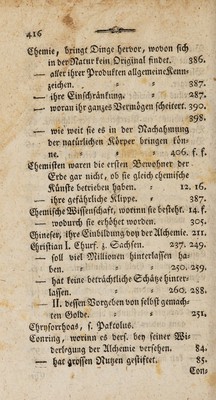 416
Chemie, bringt Dinge hervor, wovon sich
in der Natur kein Original findet. 386.
— aller ihrer Produkten allgemeine Kenn-
zeichen. 387.
— ihre Einschränkung. 287.
— woran ihr ganzes Vermögen scheitert. 390.
398.
— wie weit sie es in der Nachahmung
der natürlichen Körper bringen kön-
ne. 406. f. f.
Chemisten waren die ersten Bewohner der
Erde gar nicht, ob sie gleich chemische
Künste betrieben haben. 12. 16.
— ihre gefährliche Klippe. 387.
Chemische Wissenschaft, worinn sie besteht. 14. f.
— wodurch sie erhöhet worden. 305.
Chineser, ihre Einbildung von der Alchemie. 211.
Christian I. Churf. z. Sachsen. 237. 249.
— soll viel Millionen hinterlassen ha-
ben. 250. 259.
— hat keine beträchtliche Schätze hinter-
lassen. 260. 288.
— II. dessen Vorgeben von selbst gemach-
ten Golde. 251.
Chrysorrhoas, s. Paktolus.
Conring, worinn es bers. bey seiner Wi-
derlegung der Alchemie versehen. 84.
— hat grossen Nutzen gestiftet. 85.
Con-